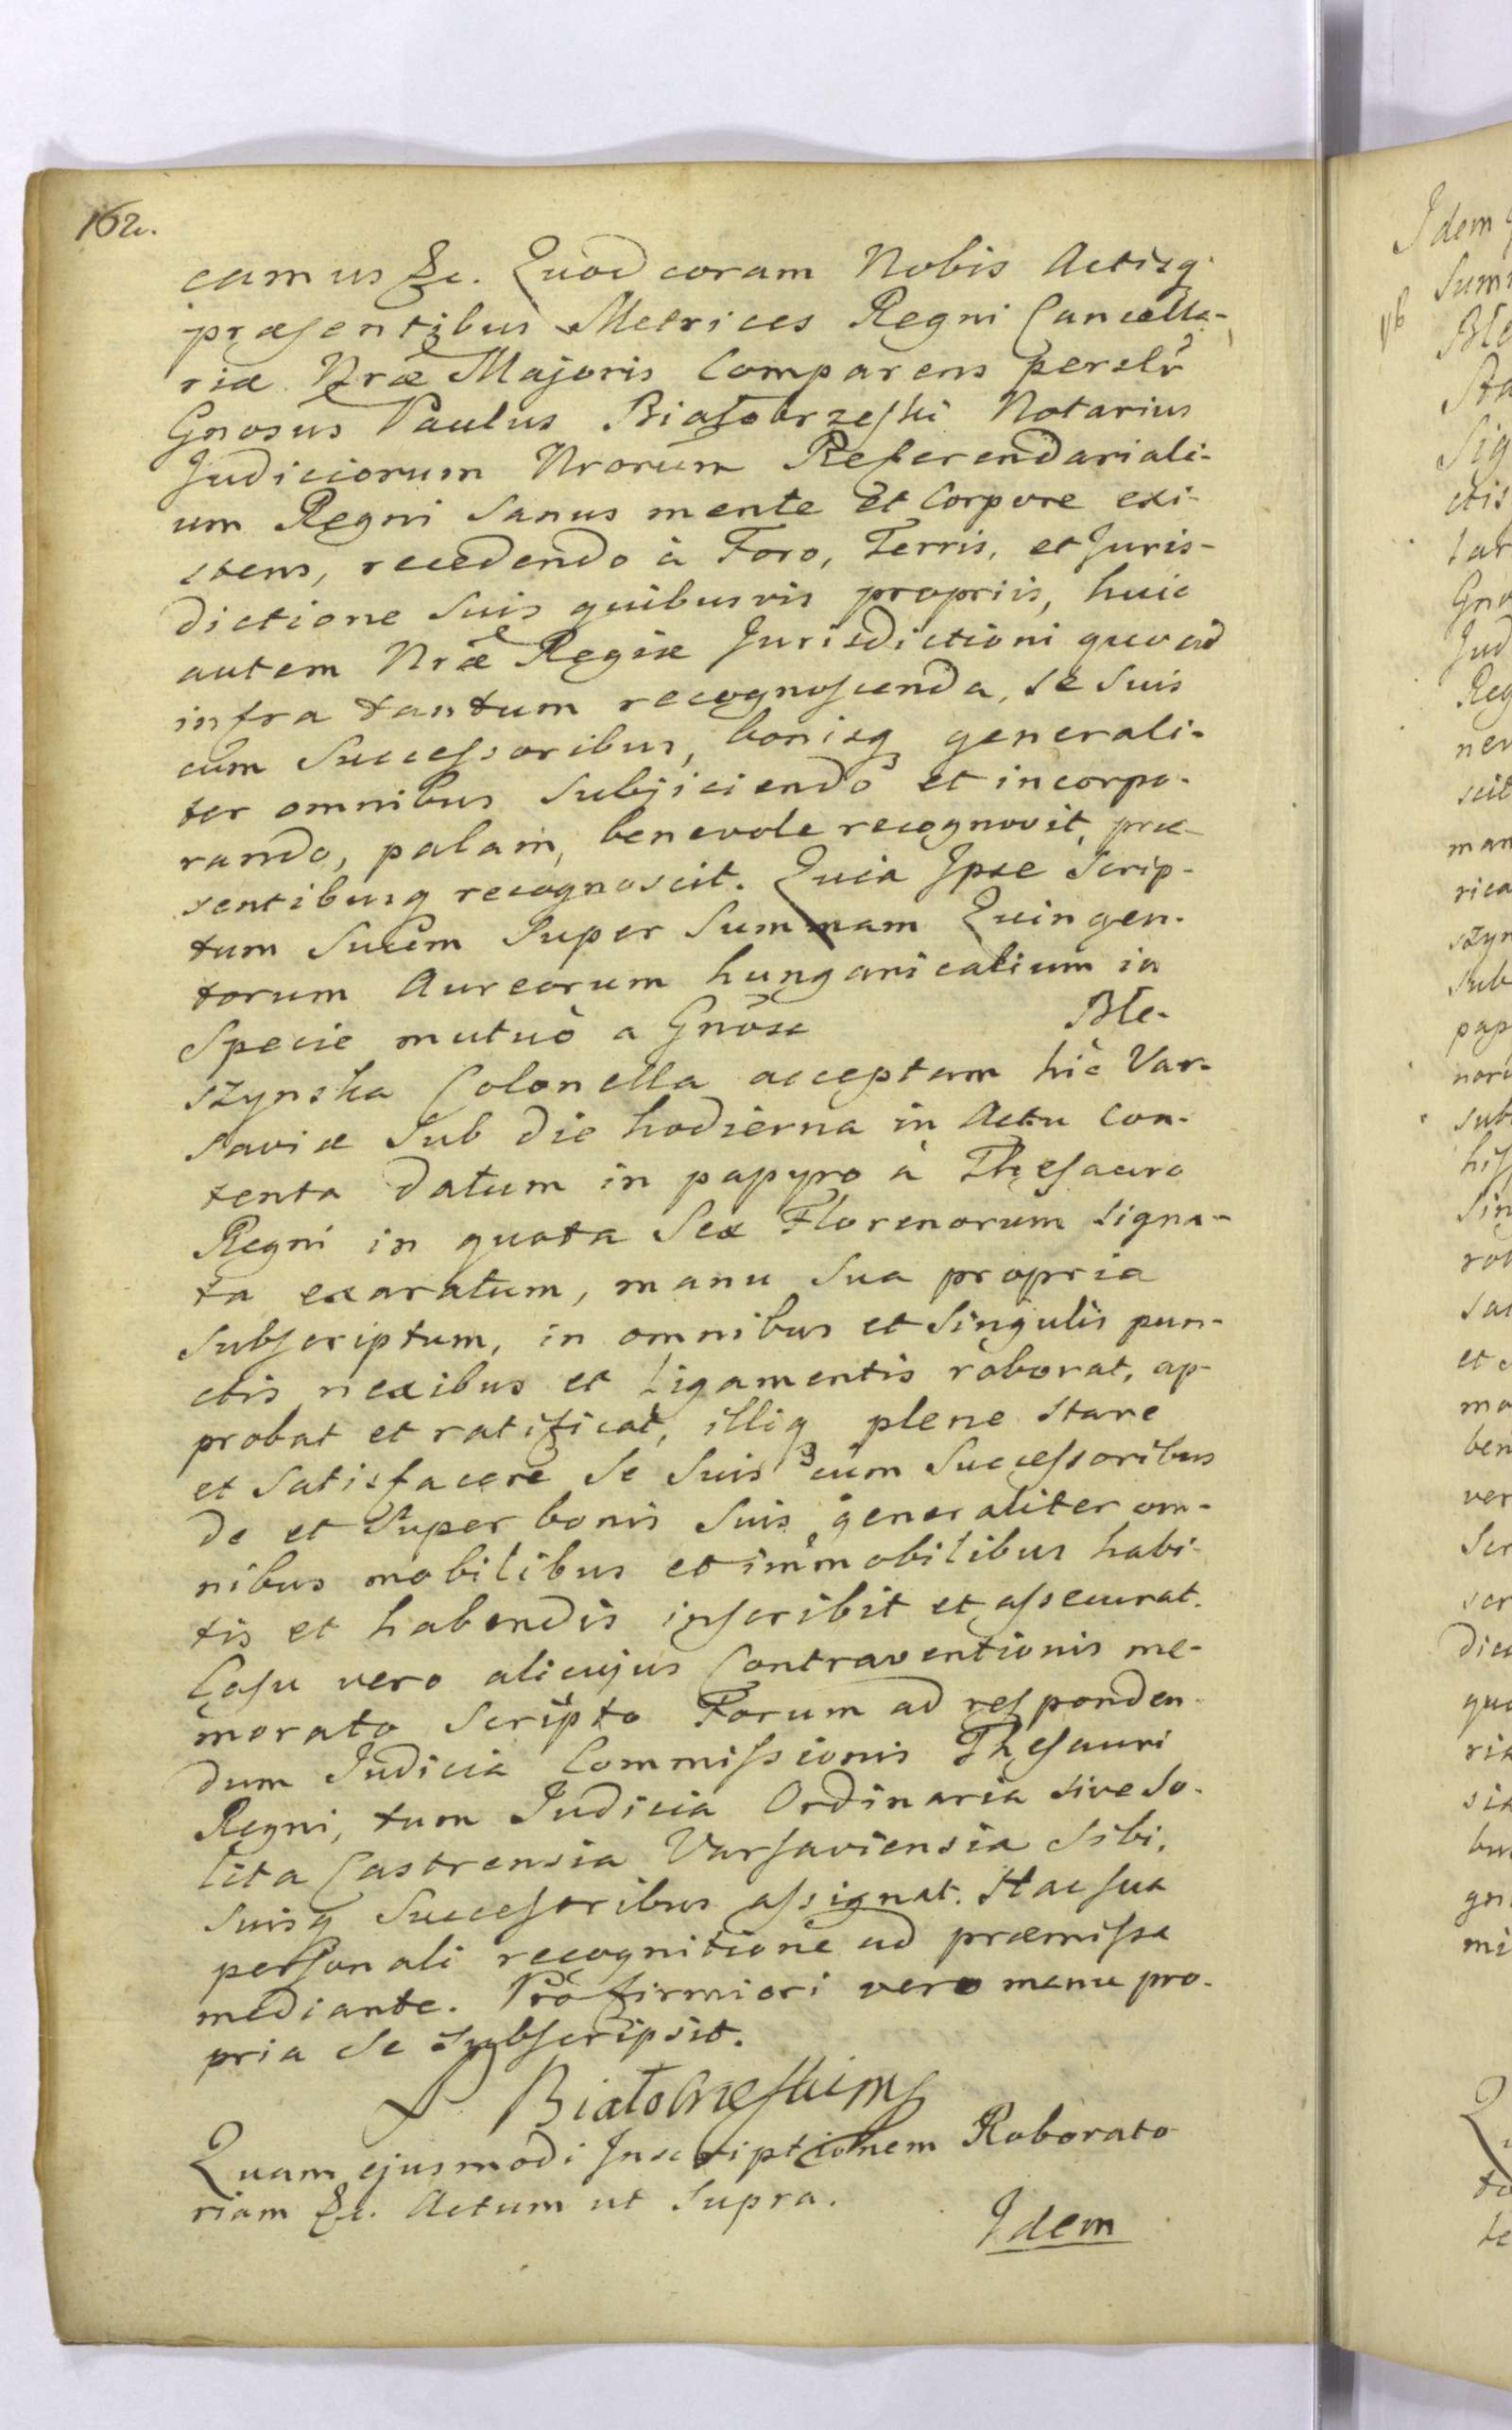 162.
camus &c. Quod coram Nobis Actisq
præsentibus Metrices Regni Cancella-
riæ Nræ Majoris Comparens perslr
Gnosus Paulus Białobrzeski Notarius
Judiciorum Nrorum Referendariali-
um Regni Sanus mente et Corpore exi-
stens, recedendo à Foro, Terris, et Juris-
dictione Suis quibusvis propriis, huic
autem Nræ Regiæ Jurisdictioni quoad
infra tantum recognoscenda, se Suis
cum Successoribus, bonisq generali-
ter omnibus Subjiciendo et incorpo-
rando, palam, benevole recognovit, præ-
sentibusq recognoscit. Quia Ipse Scrip-
tum Suum Super Summam Quingen-
torum Aureorum hungaricalium in
Specie mutuò a Gnosa Ble-
szynska Colonella acceptam hic Var-
saviæ Sub die hodierna in Actu Con-
tenta datum in papyro à Thesauro
Regni in quota Sex Florenorum Signa-
ta exaratum, manu Sua propria
Subscriptum, in omnibus et Singulis pun-
ctis nexibus et ligamentis roborat, ap-
probat et ratificat, illiq plene Stare
et Satisfacere Se Suis cum Successoribus
de et Super bonis Suis generaliter om-
nibus mobilibus et immobilibus habi-
tis et habendis inscribit et assecurat.
Casu vero alicujus Contraventionis me-
morato Scripto Forum ad responden-
dum Judicia Commissionis Thesauri
Regni, tum Judicia Ordinaria sive So-
lita Castrensia Varsaviensia Sibi,
Suisq Successoribus assignat. Hac sua
personali recognitione ad præmissa
mediante. Pro firmiori vero manu pro-
pria Se Subscripsit.
P Białobrzeski mp
Quam ejusmodi Inscriptionem Roborato
riam &c. Actum ut Supra.
Idem